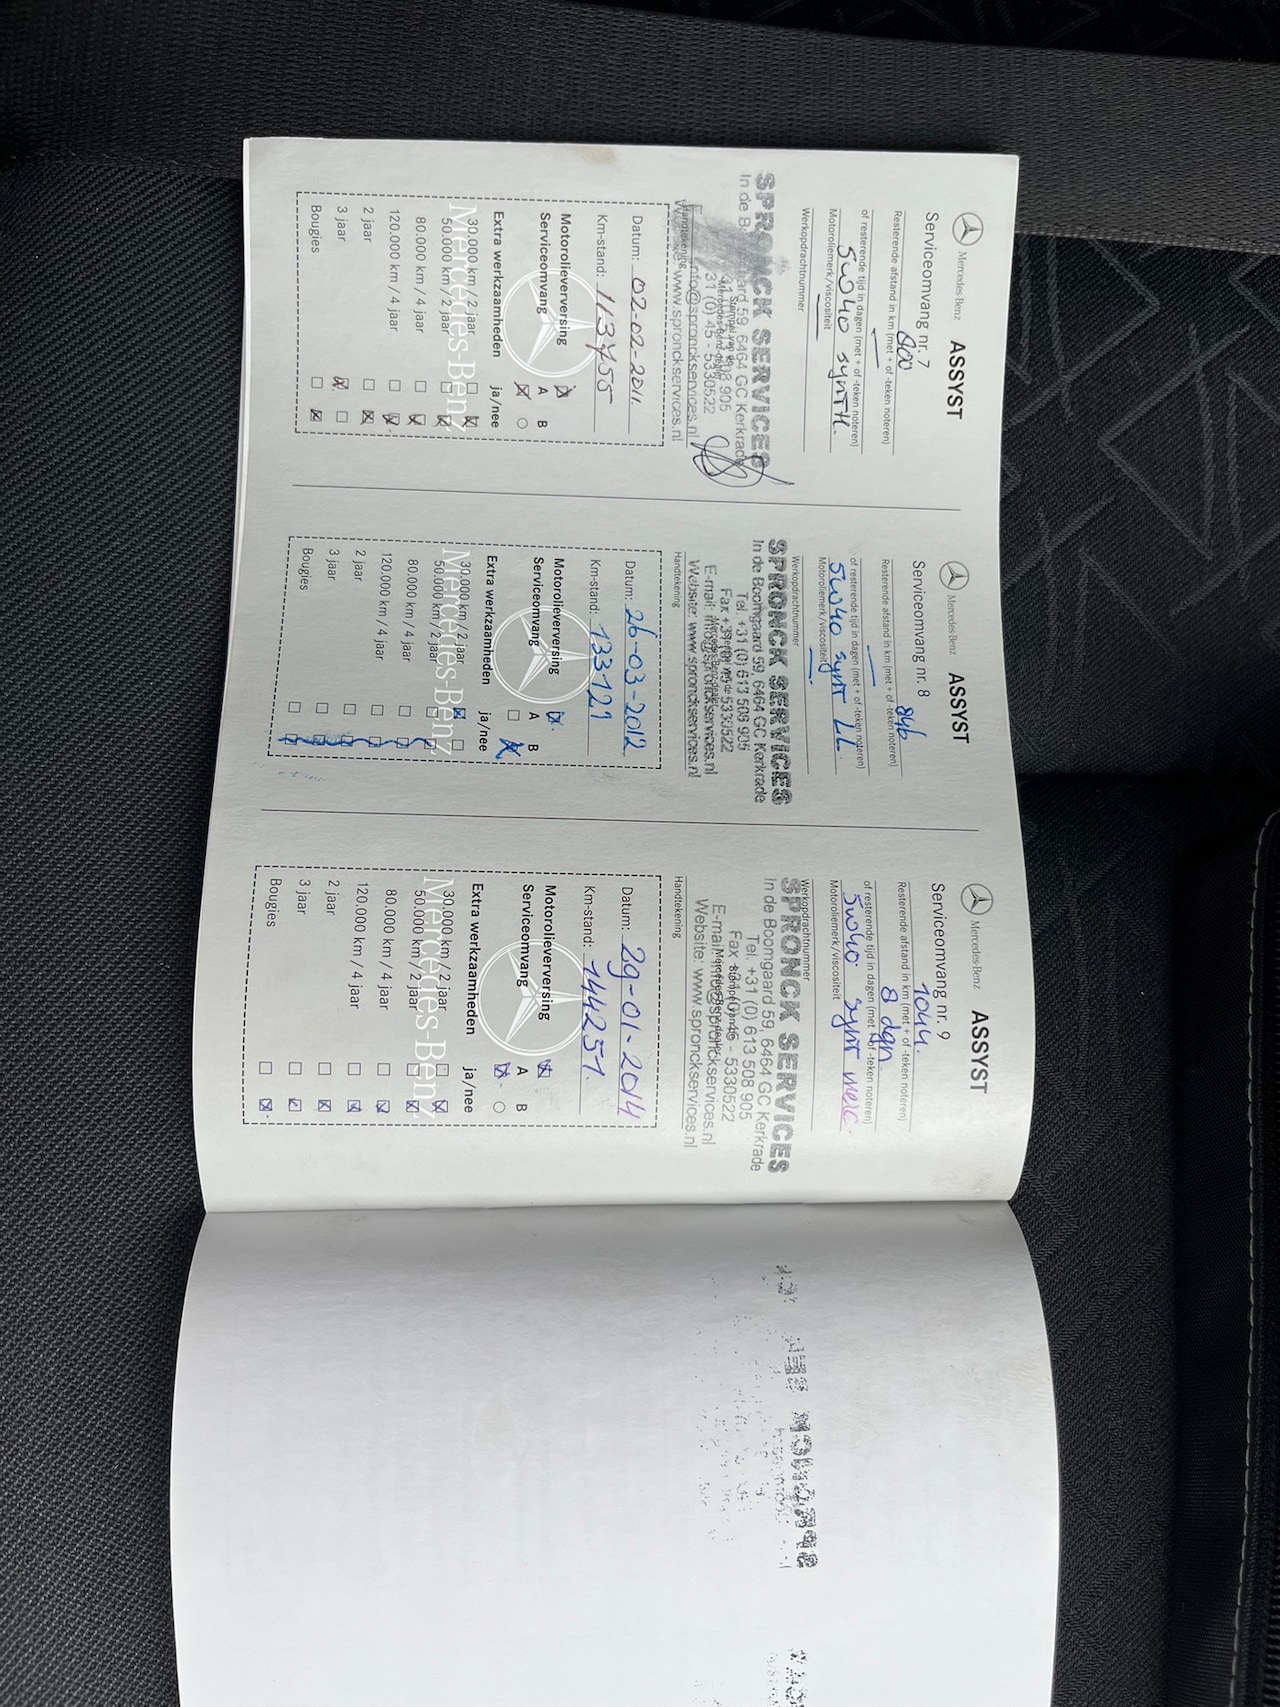 Mercedes-Benz ASSYST
Serviceomvang nr. 7
800
Resterende afstand in km (met + of -teken noteren)
of resterende tijd in dagen (met + of -teken noteren)
5w40 synth.
Motoroliemerk/viscositeit
Werkopdrachtnummer
SPRONCK SERVICES
In de B ard 59, 6464 GC Kerkrade
908 905
31 (0) 45 - 5330522
info@spronckservices.nl
www.spronckservices.nl
Handtekening
Datum: 02-02-2011
Km-stand: 113755
Motorolieverversing
Serviceomvang A B
Extra werkzaamheden ja/nee
30.000 km / 2 jaar
50.000 km / 2 jaar
Mercedes-Benz
80.000 km / 4 jaar
120.000 km / 4 jaar
2 jaar
3 jaar
Bougies
Mercedes-Benz ASSYST
Serviceomvang nr. 8
846
Resterende afstand in km (met + of -teken noteren)
of resterende tijd in dagen (met + of -teken noteren)
5w40 synt LL
Motoroliemerk/viscositeit
Werkopdrachtnummer
SPRONCK SERVICES
In de Boomgaard 59, 6464 GC Kerkrade
Tel. +31 (0) 613 508 905
Fax +31 (0) 45 - 5330522
E-mail: info@spronckservices.nl
Website: www.spronckservices.nl
Handtekening
Datum: 26-03-2012
Km-stand: 133121
Motorolieverversing
Serviceomvang A B
Extra werkzaamheden ja/nee
30.000 km / 2 jaar
50.000 km / 2 jaar
Mercedes-Benz
80.000 km / 4 jaar
120.000 km / 4 jaar
2 jaar
3 jaar
Bougies
Mercedes-Benz ASSYST
Serviceomvang nr. 9
1044.
Resterende afstand in km (met + of -teken noteren)
8 dgn
of resterende tijd in dagen (met + of -teken noteren)
5w40 synt merc.
Motoroliemerk/viscositeit
Werkopdrachtnummer
SPRONCK SERVICES
In de Boomgaard 59, 6464 GC Kerkrade
Tel. +31 (0) 613 508 905
Fax +31 (0) 45 - 5330522
E-mail: info@spronckservices.nl
Website: www.spronckservices.nl
Handtekening
Datum: 29-01-2014
Km-stand: 144251.
Motorolieverversing
Serviceomvang A B
Extra werkzaamheden ja/nee
30.000 km / 2 jaar
50.000 km / 2 jaar
Mercedes-Benz
80.000 km / 4 jaar
120.000 km / 4 jaar
2 jaar
3 jaar
Bougies